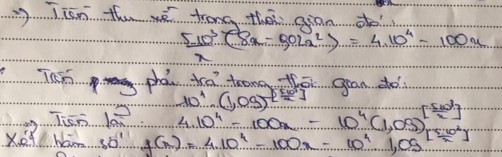 => Tiền thu xế trong thời gian đó:
5.10³/x (8x - 0,02x²) = 4.10⁴ - 100x
Tiền phải trả trong thời gian đó:
10⁴.(1,05)^[5.10³/x]
=> Tiền lãi: 4.10⁴ - 100x - 10⁴(1,05)^[5.10³/x]
Xét hàm số f(x) = 4.10⁴ - 100x - 10⁴ 1,05^[5.10³/x]